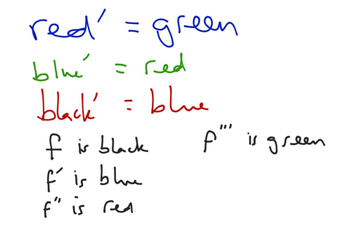 red' = green
blue' = red
black' = blue
f is black
f' is blue
f" is red
f''' is green